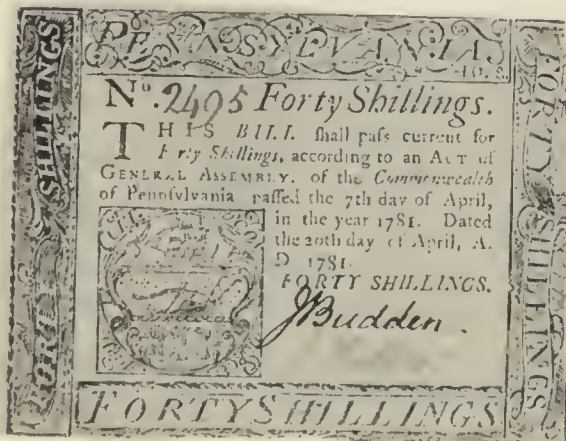 PENNSYLVANIA.
No. 2495 Forty Shillings.
THIS BILL shall paſs current for
Forty Shillings, according to an ACT of
GENERAL ASSEMBLY, of the Commonwealth
of Pennſylvania paſſed the 7th day of April,
in the year 1781. Dated
the 20th day of April, A.
D. 1781.
FORTY SHILLINGS.
J Budden.
FORTY SHILLINGS
FORTY SHILLINGS
FORTY SHILLINGS